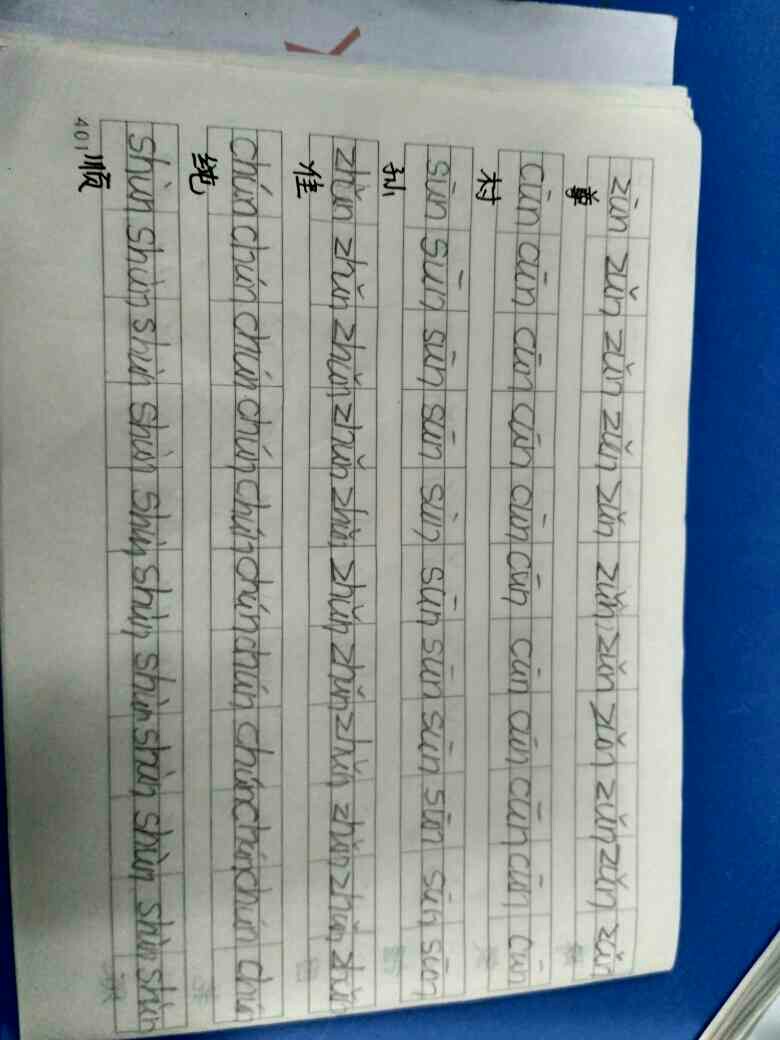 zūn zǔn zǔn zǔn zǔn zǔn zǔn zǔn zǔn zǔn zǔn
尊
cūn cūn cūn cūn cūn cūn cūn cūn cūn cūn cūn
村
sūn sūn sūn sūn sūn sūn sūn sūn sūn sūn sūn
孙
zhǔn zhǔn zhǔn zhǔn zhǔn zhǔn zhǔn zhǔn zhǔn zhǔn zhǔn
准
chún chún chún chún chún chún chún chún chún chún chún
纯
shùn shùn shùn shùn shùn shùn shùn shùn shùn shùn shùn
顺
401